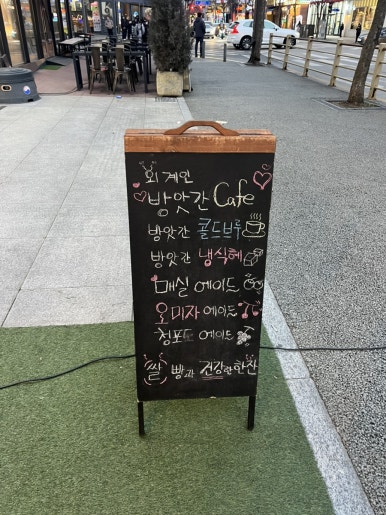 외계인
방앗간 Cafe
방앗간 콜드브루
방앗간 냉식혜
매실 에이드
오미자 에이드
청포도 에이드
쌀 빵과 건강한 한잔